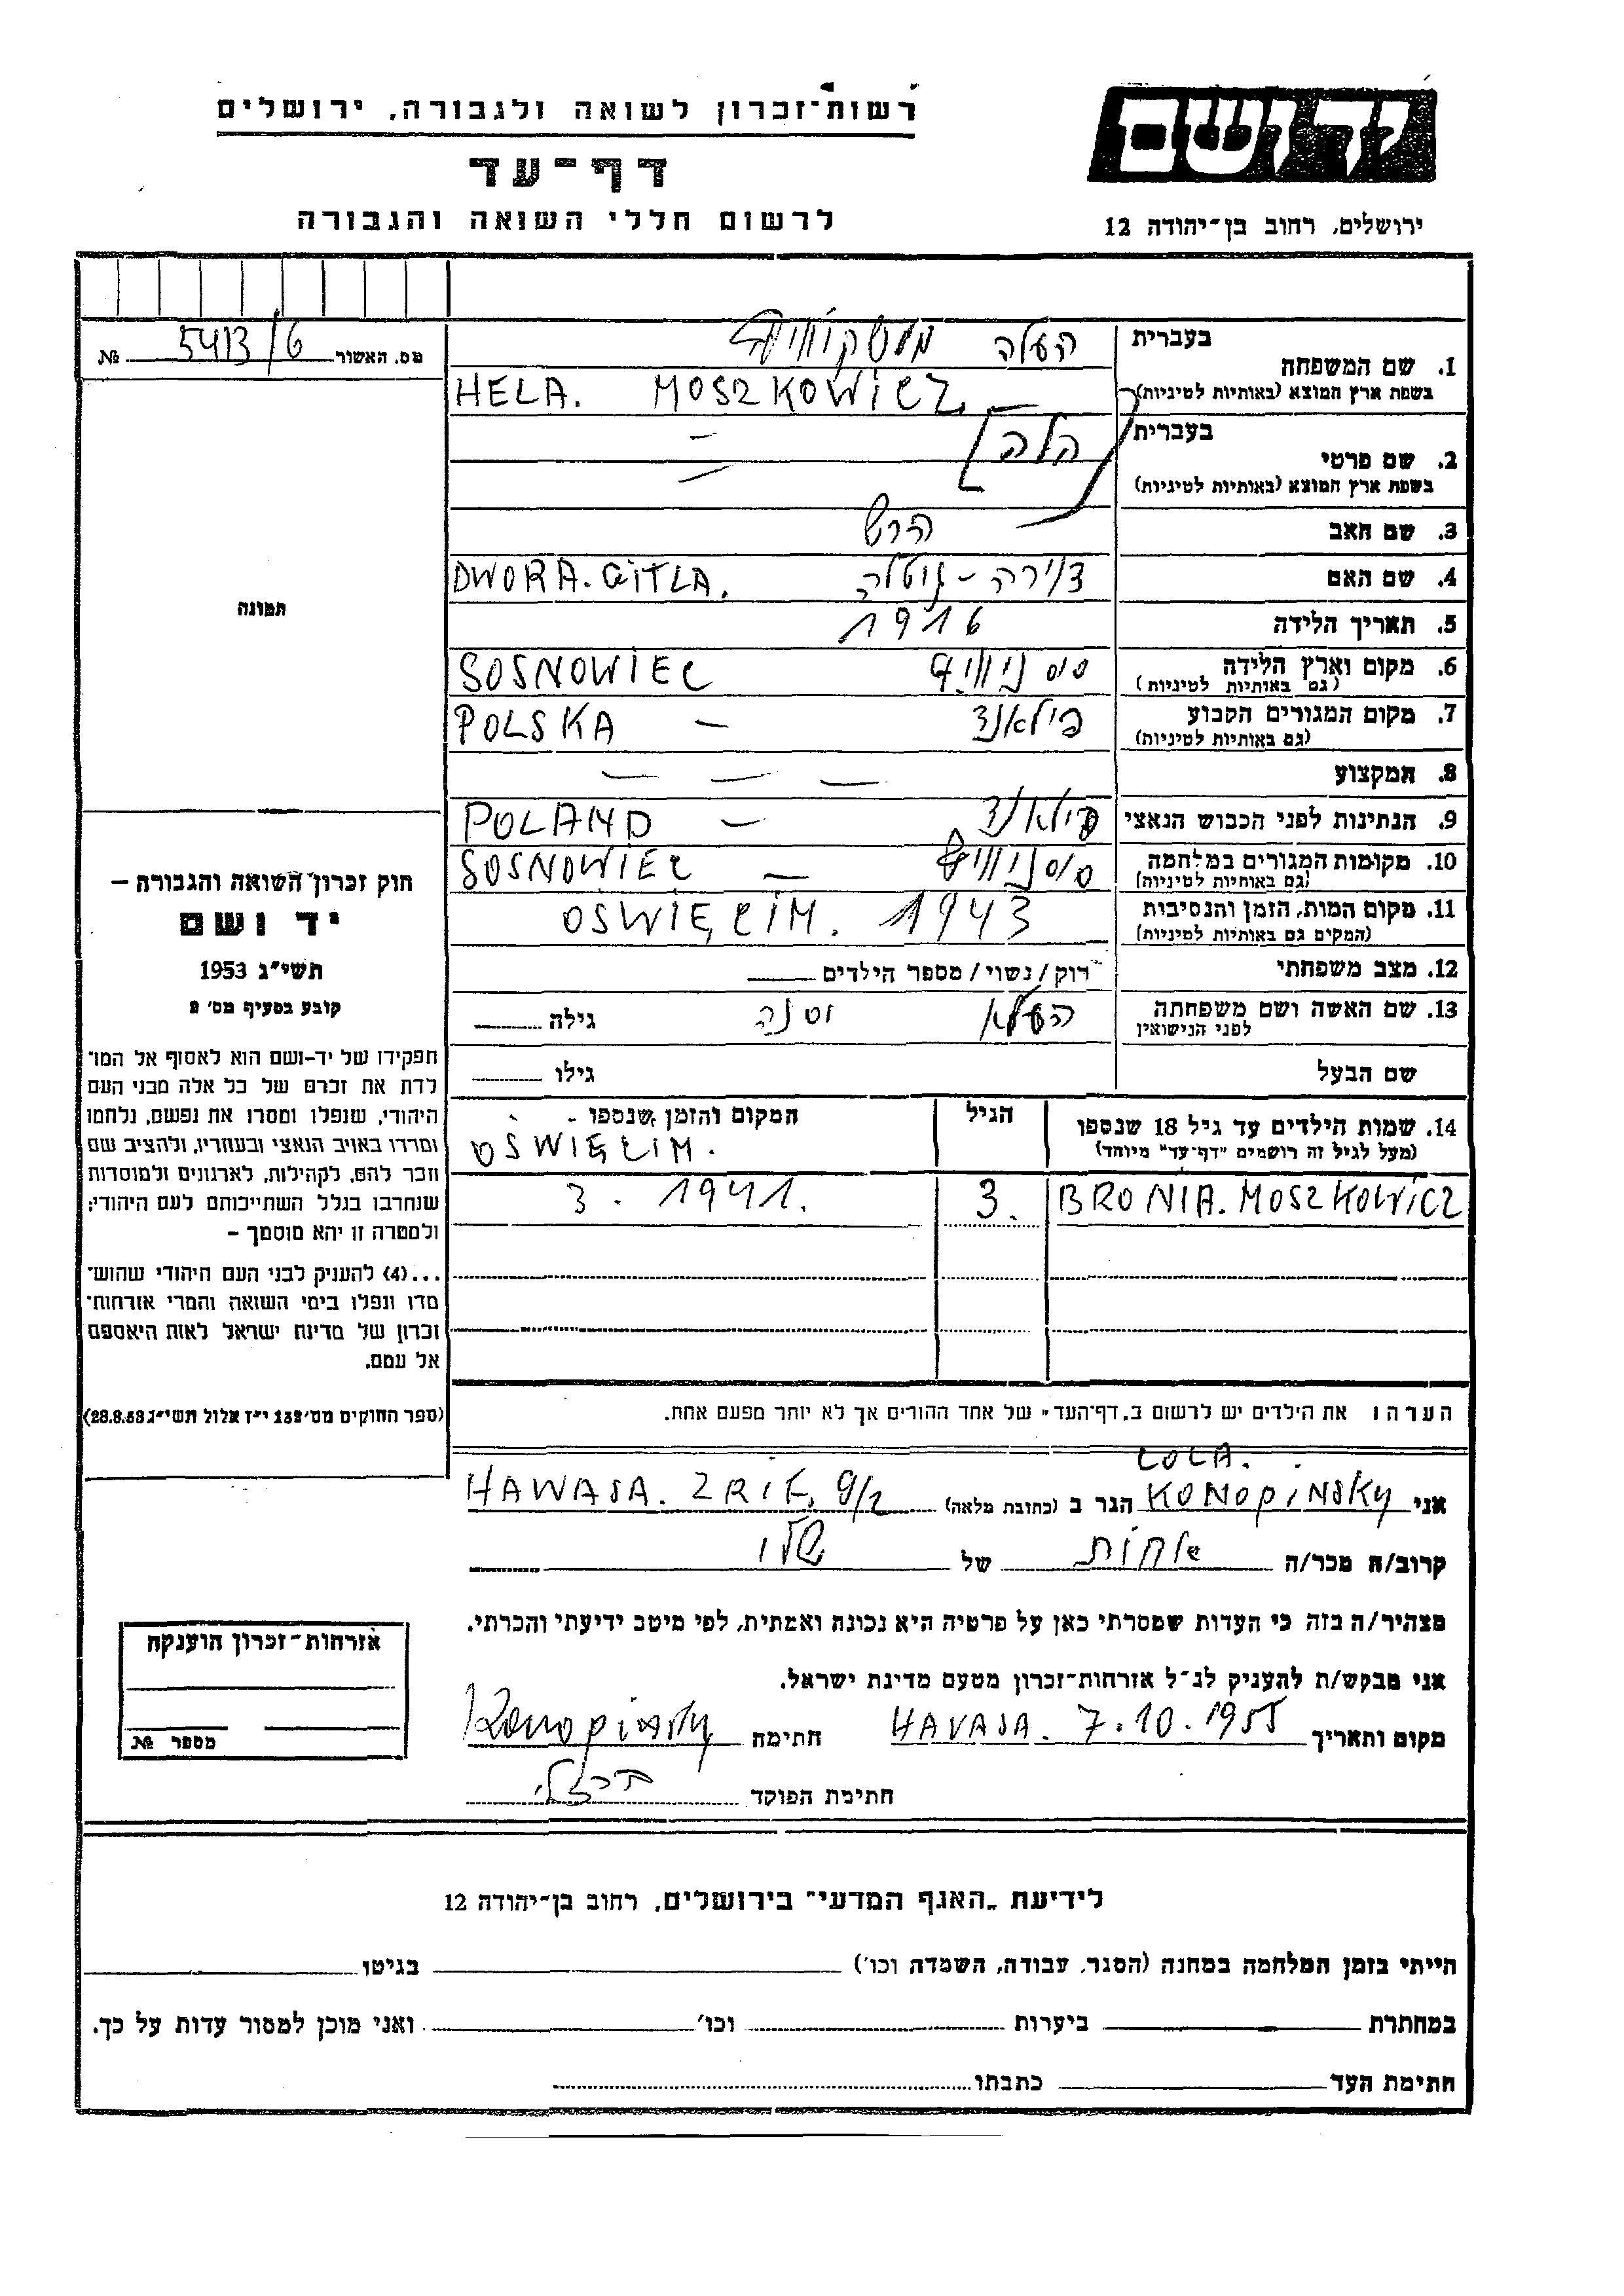 רשות־זכרון לשואה ולגבורה, ירושלים
דף־עד
לרשום חללי השואה והגבורה
יד ושם
ירושלים, רחוב בן־יהודה 12
מס. האשור 5413/6 №
תמונה
1. שם המשפחה
בעברית
העלה מושקוויץ
בשפת ארץ המוצא (באותיות לטיניות)
HELA. MOSZKOWICZ
2. שם פרטי
בעברית
[הלה] –
בשפת ארץ המוצא (באותיות לטיניות) –
3. שם האב הרש
4. שם האם
DWORA. GITLA.
5. תאריך הלידה 1916
6. מקום וארץ הלידה
(גם באותיות לטיניות)
סוסנוויץ SOSNOWIEC
7. מקום המגורים הקבוע
(גם באותיות לטיניות)
פילאנד – POLSKA
8. המקצוע – – –
9. הנתינות לפני הכבוש הנאצי פילאנד – POLAND
10. מקומות המגורים במלחמה
(גם באותיות לטיניות)
סוסנוויץ – SOSNOWIEC
11. מקום המות, הזמן והנסיבות
(המקים גם באותיות לטיניות)
OŚWIĘCIM. 1943
12. מצב משפחתי רוק / נשוי / מספר הילדים
13. שם האשה ושם משפחתה
לפני הנישואין
גילה
שם הבעל גילו
14. שמות הילדים עד גיל 18 שנספו
(מעל לגיל זה רושמים "דף־עד" מיוחד)
הגיל
המקום והזמן שנספו -
OŚWIĘCIM.
BRONIA. MOSZKOWICZ 3. 3. 1941.
הערה: את הילדים יש לרשום ב„דף־העד" של אחד ההורים אך לא יותר מפעם אחת.
חוק זכרון השואה והגבורה –
יד ושם
תשי"ג 1953
קובע בסעיף מס' 2
תפקידו של יד-ושם הוא לאסוף אל המו־
לדת את זכרם של כל אלה מבני העם
היהודי, שנפלו ומסרו את נפשם, נלחמו
ומרדו באויב הנאצי ובעוזריו, ולהציב שם
וזכר להם, לקהילות, לארגונים ולמוסדות
שנחרבו בגלל השתייכותם לעם היהודי;
ולמטרה זו יהא מוסמך –
...(4) להעניק לבני העם היהודי שהוש־
מדו ונפלו בימי השואה והמרי אזרחות־
זכרון של מדינת ישראל לאות היאספם
אל עמם.
(ספר החוקים מס' 132 י"ז אלול תשי"ג 28.8.53)
LOLA.
אני KONOPINSKY הגר ב (כתובת מלאה) HAWASA. ZRIF. 9/2
קרוב/ה מכר/ה אחות של שלו
מצהיר/ה בזה כי העדות שמסרתי כאן על פרטיה היא נכונה ואמתית, לפי מיטב ידיעתי והכרתי.
אני מבקש/ת להעניק לנ"ל אזרחות־זכרון מטעם מדינת ישראל.
מקום ותאריך HAVASA. 7.10.1955 חתימה Konopinsky
חתימת הפוקד
אזרחות־זכרון הוענקה
מספר №
לידיעת „האגף המדעי" בירושלים, רחוב בן־יהודה 12
הייתי בזמן המלחמה במחנה (הסגר, עבודה, השמדה וכו') בגיטו
במחתרת ביערות וכו' ואני מוכן למסור עדות על כך.
חתימת העד כתבתו